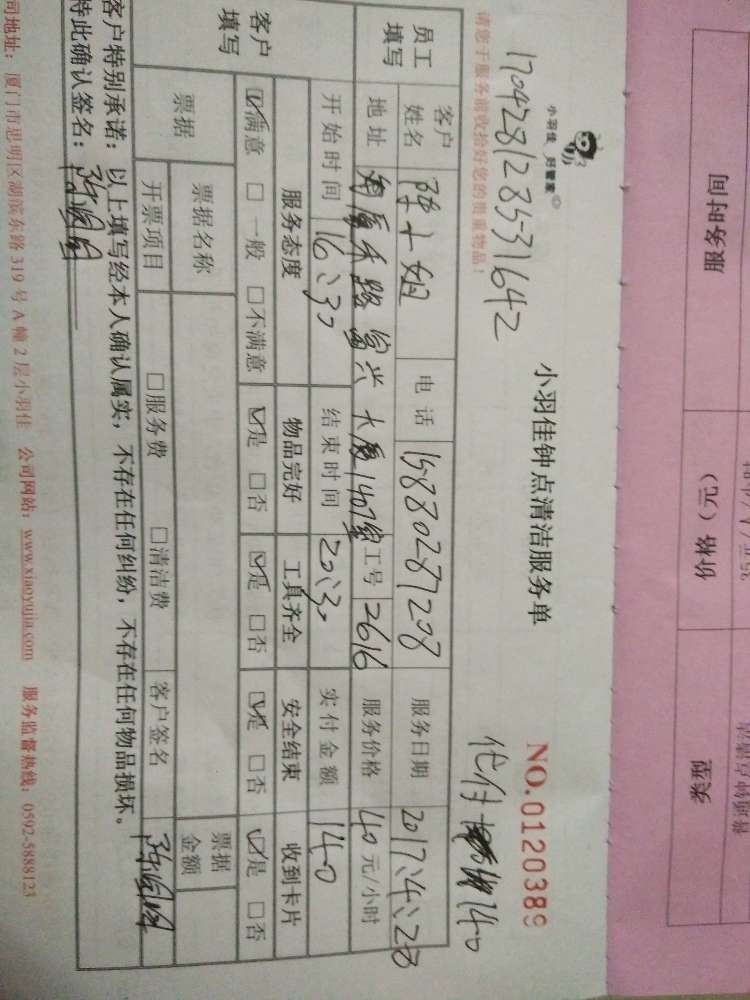 服务时间
价格（元）
类型
小羽佳 好管家
17042812853 1642
小羽佳钟点清洁服务单
NO.0120389
请您于服务前收拾好您的贵重物品！
代付 140
员工填写
客户姓名 陈小姐 电话 15880287208 服务日期 2017.4.28
地址 路富兴大厦1407室 工号 2616 服务价格 40元/小时
开始时间 16:30 结束时间 20:30 实付金额 140
客户填写
服务态度 物品完好 工具齐全 安全结束 收到卡片
☑满意 □一般 □不满意 ☑是 □否 ☑是 □否 ☑是 □否 ☑是 □否
票据 票据名称 票据金额
开票项目 □服务费 □清洁费 客户签名
客户特别承诺：以上填写经本人确认属实，不存在任何纠纷，不存在任何物品损坏。
特此确认签名：
司地址：厦门市思明区湖滨东路319号A幢2层小羽佳 公司网站：www.xiaoyujia.com 服务监督热线：0592-5888123